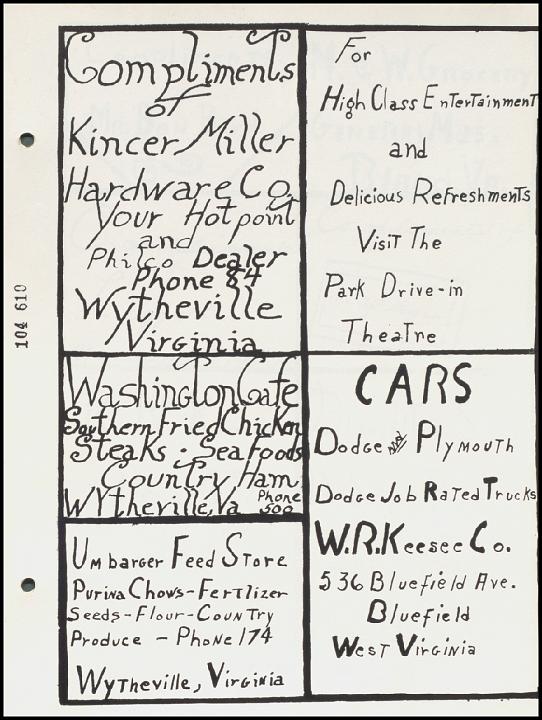 Compliments
of
Kincer Miller
Hardware Co.
Your Hotpoint
and
Philco Dealer
Phone 84
Wytheville
Virginia
Washington Cafe
Southern Fried Chicken
Steaks - Sea Foods
Country Ham
Wytheville, Va Phone 500
Umbarger Feed Store
Purina Chows-Fertlizer
Seeds-Flour-Country
Produce - Phone 174
Wytheville, Virginia
For
High Class Entertainment
and
Delicious Refreshments
Visit The
Park Drive-in
Theatre
CARS
Dodge and Plymouth
Dodge Job Rated Trucks
W.R.Keesee Co.
536 Bluefield Ave.
Bluefield
West Virginia
104 610